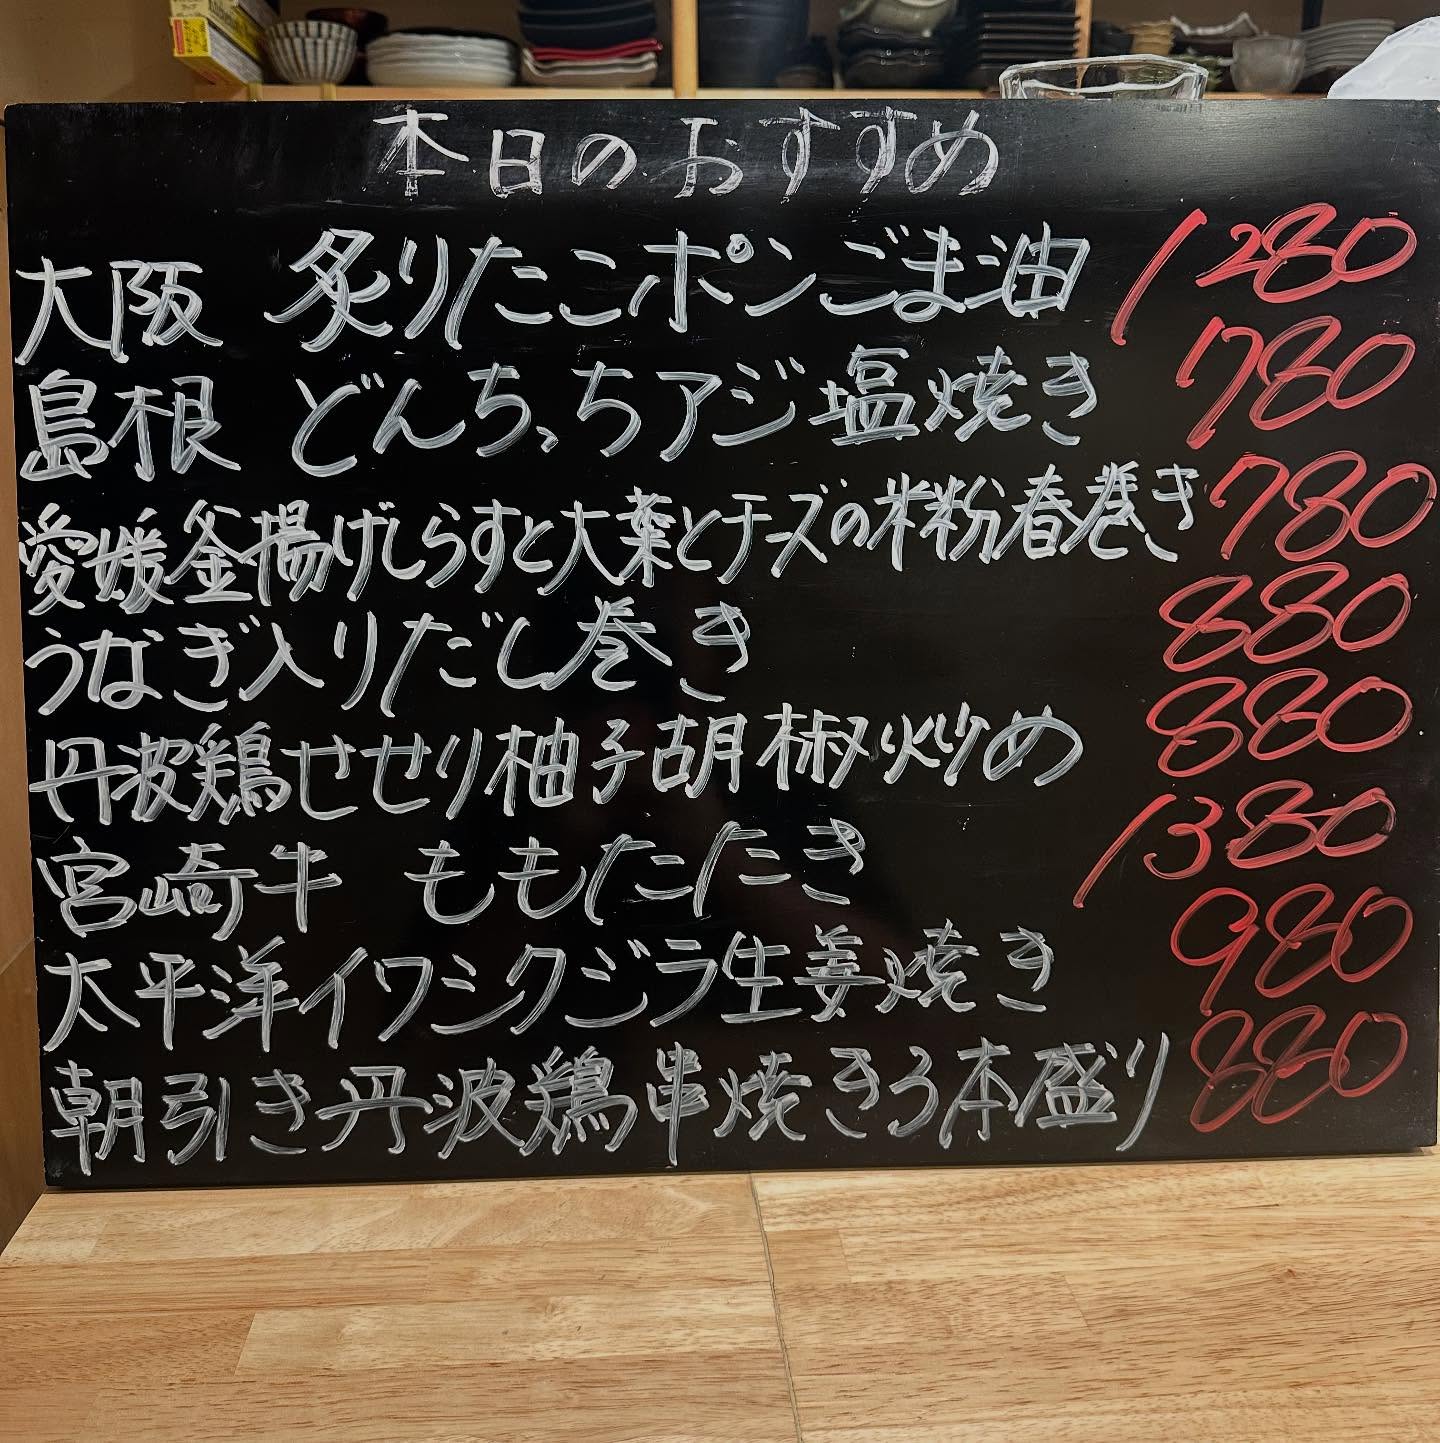 本日のおすすめ
大阪 炙りたこポンごま油 1280
島根 どんちっちアジ塩焼き 780
愛媛釜揚げしらすと大葉とチーズの米粉春巻き 780
うなぎ入りだし巻き 880
丹波鶏せせり柚子胡椒炒め 880
宮崎牛 ももたたき 1380
太平洋イワシクジラ生姜焼き 980
朝引き丹波鶏串焼き3本盛り 880